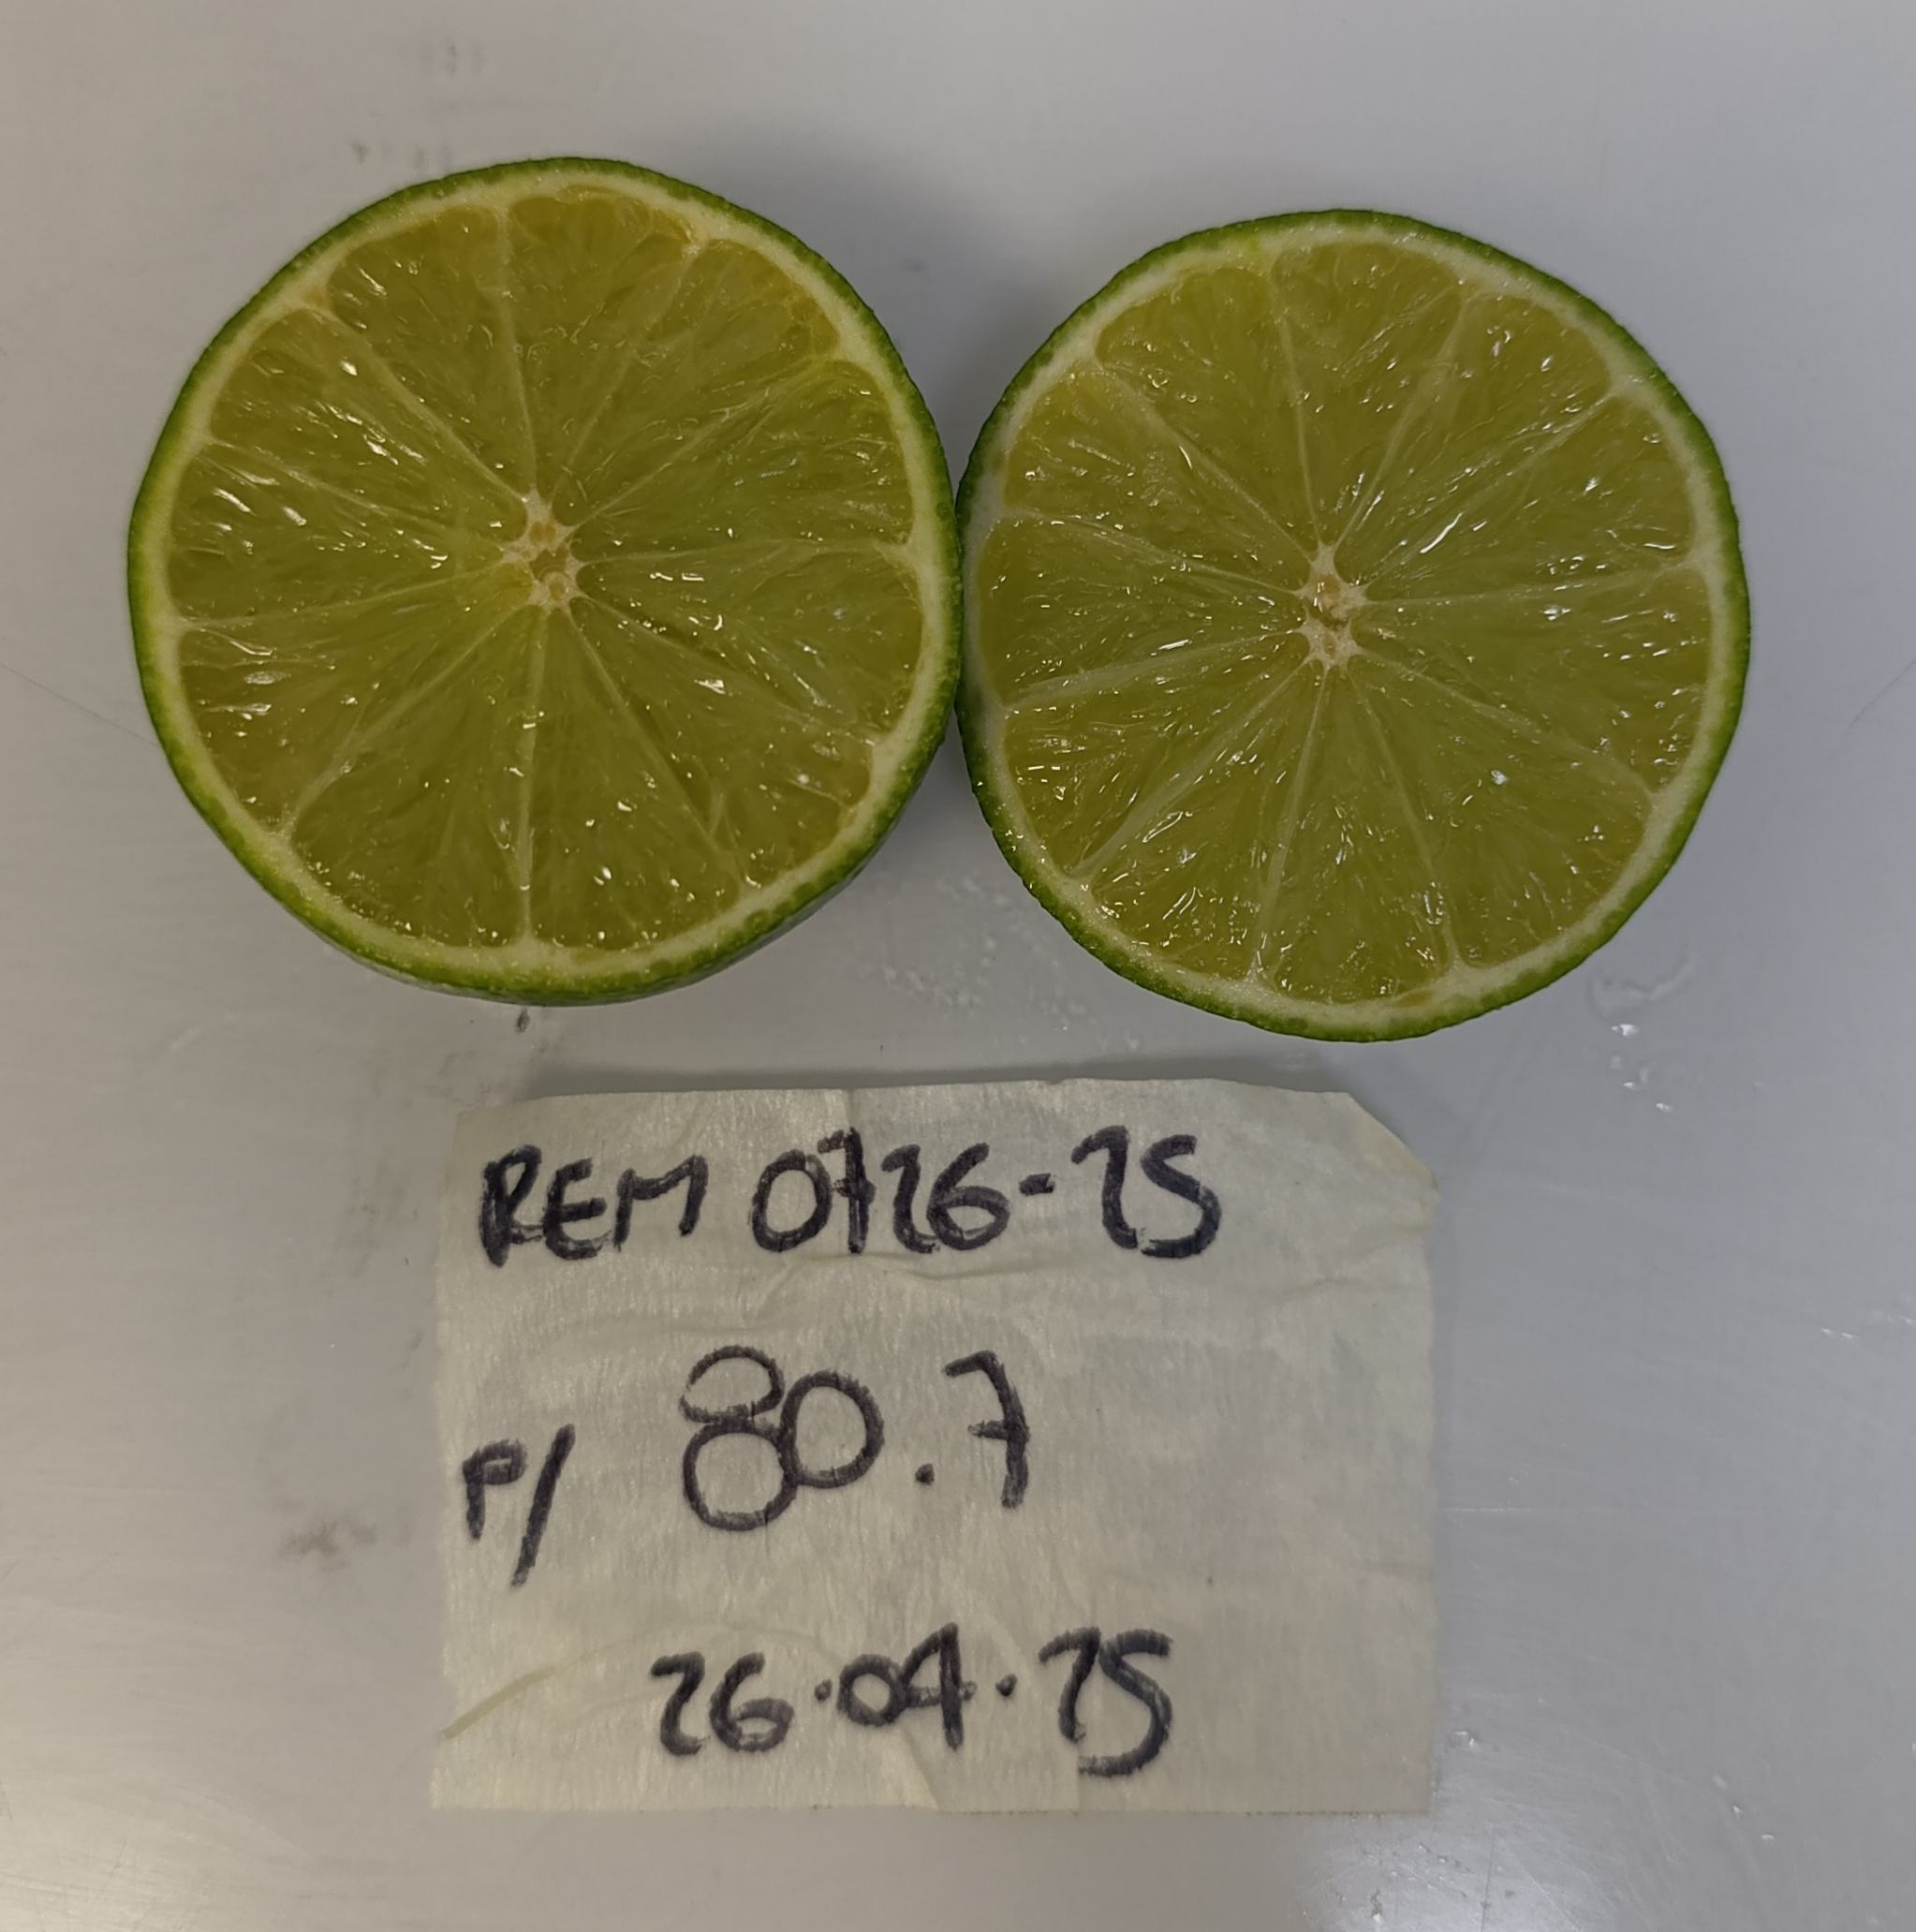 REM 0726-25
P/ 80.7
26.04.25